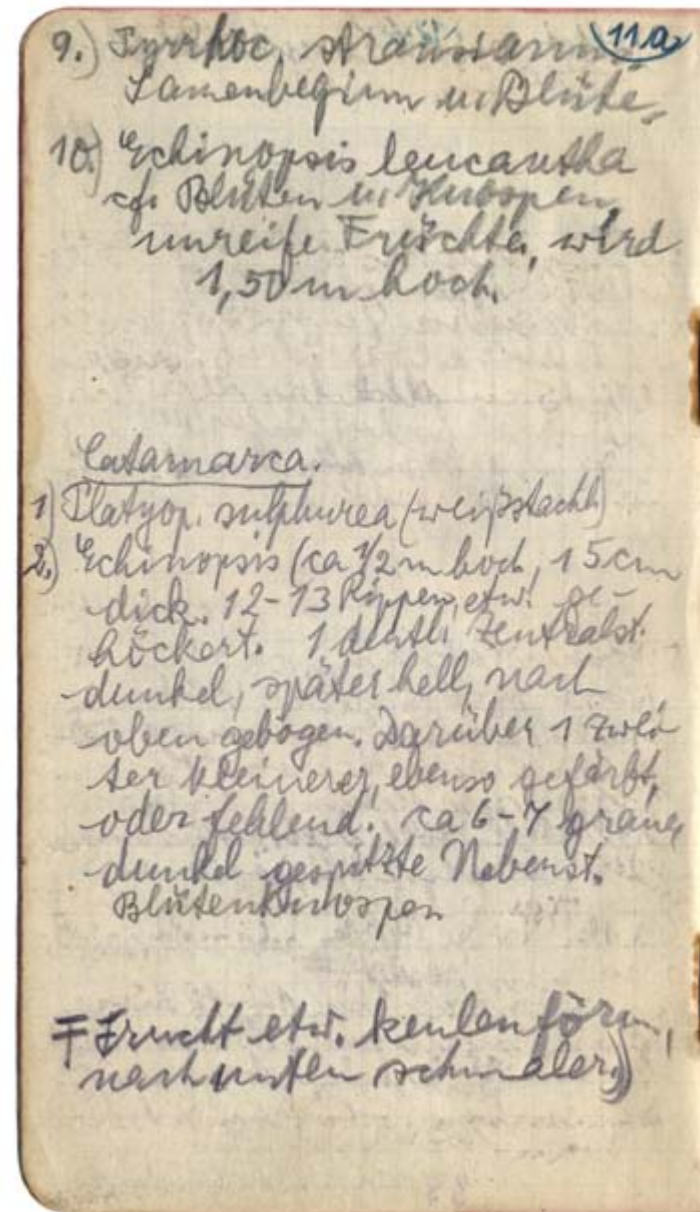 11.a
9.) Pyrrhoc. straussiana
Samenbeginn u. Blüte.
10.) Echinopsis leucantha
cf. Blüten u. Knospen,
unreife Früchte, wird
1,50 m hoch.
Catamarca.
1) Platyop. sulphurea (weißstachl.)
2.) Echinopsis (ca 1/2 m hoch, 15 cm
dick. 12-13 Rippen, etw. ge-
höckert. 1 deutl. Zentralst.
dunkel, später hell, nach
oben gebogen. Darüber 1 zwei-
ter kleinerer, ebenso gefärbt,
oder fehlend. ca 6-7 graue,
dunkel gespitzte Nebenst.
Blütenknospen
Frucht etw. keulenförm.,
nach unten schmaler.)